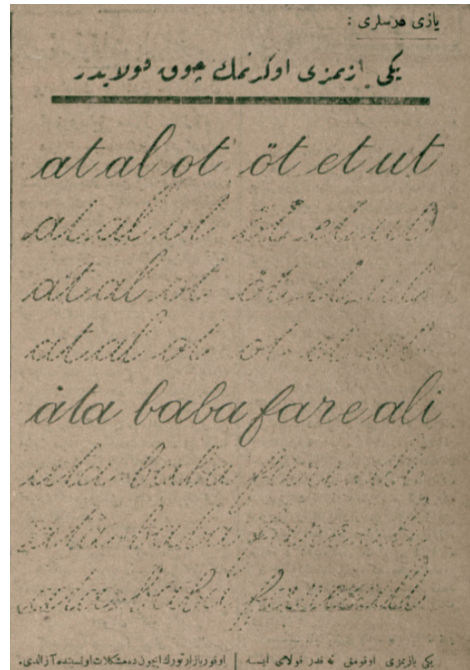 يازى درسلرى :
يكى يازيمزى اوكرنمك چوق قولايدر
at al ot öt et ut
at al ot öt et ut
at al ot öt et ut
at al ot ot et ut
ata baba fare ali
ata baba fare ali
ata baba fare ali
ata baba fare ali
يكى يازيمزى اوقومق نه قدر قولاى ايسه
اوقور يازار تورك ايچون ده مشكلات اولسنده آزالدى.